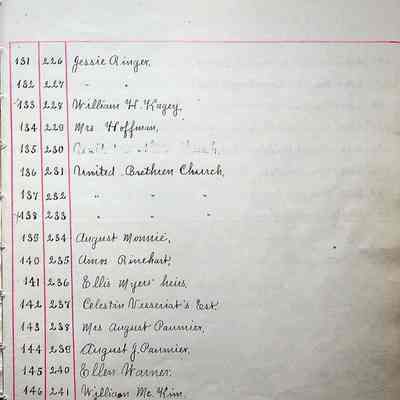 131 226 Jessie Ringer,
132 227 " "
133 228 William H. Kagey,
134 229 Mrs Hoffman,
135 230
136 231 United Brethren Church,
137 232 " " "
138 233 " " "
139 234 August Monnie,
140 235 Amos Rinehart,
141 236 Ellis Myers' heirs,
142 237 Celestin Vesseriat's Est.
143 238 Mrs August Paumier,
144 239 August J. Paumier,
145 240 Ellen Warner,
146 241 William Mc. Kim.